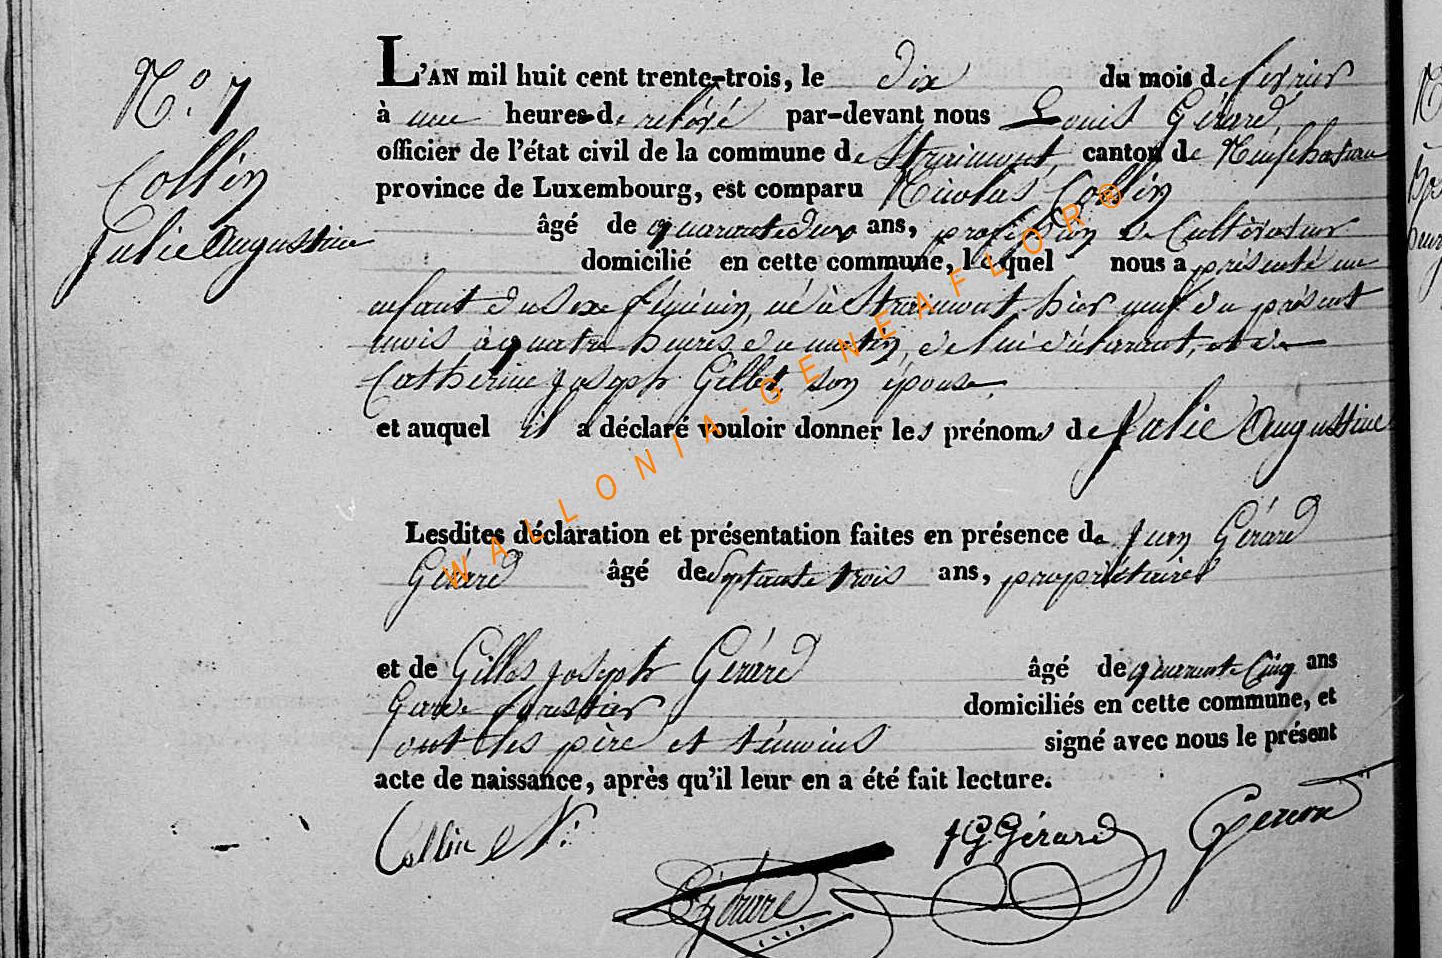 N.° 7
Collin
Julie Augustine
L'AN mil huit cent trente-trois, le dix du mois de février
à une heures de relevé par-devant nous Louis Gérard,
officier de l'état civil de la commune de Straimont, canton de Neufchateau
province de Luxembourg, est comparu Nicolas Collin
âgé de quarante deux ans, profession de Cultivateur
domicilié en cette commune, lequel nous a présenté un
enfant du sexe féminin, né à Straimont, hier neuf du présent
mois à quatre heures du matin, de lui déclarant, et de
Catherine Joseph Gillet, son épouse,
et auquel il a déclaré vouloir donner les prénoms de Julie Augustine
Lesdites déclaration et présentation faites en présence de Jean Gérard
Gérard âgé de Septante trois ans, propriétaire
et de Gilles Joseph Gérard âgé de quarante Cinq ans
Garde forestier domiciliés en cette commune, et
ont les père et témoins signé avec nous le présent
acte de naissance, après qu'il leur en a été fait lecture.
Collin N.
JG Gérard Gérard
WALLONIA-GENEAFLOR®